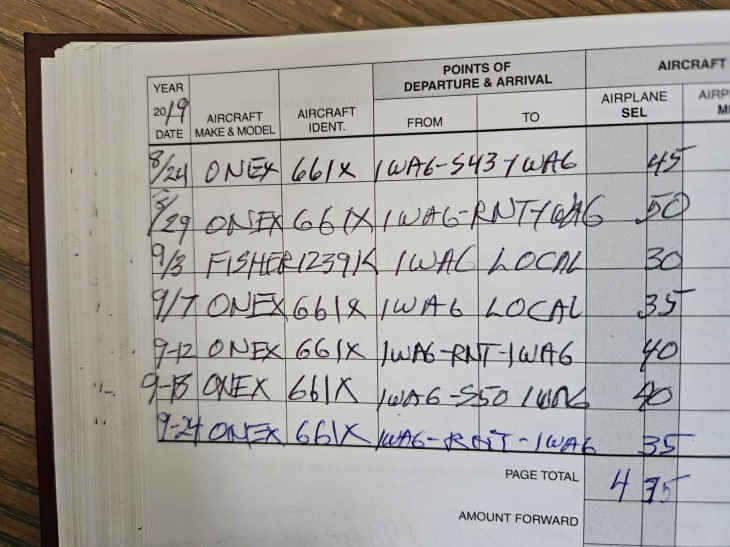 POINTS OF
DEPARTURE & ARRIVAL
AIRCRAFT
YEAR
2019
DATE
AIRCRAFT
MAKE & MODEL
AIRCRAFT
IDENT.
FROM
TO
AIRPLANE
SEL
8/24 ONEX 661X 1WA6-S43-1WA6 45
8/29 ONEX 661X 1WA6-RNT-1WA6 50
9/3 FISHER 12391K 1WA6 LOCAL 30
9/7 ONEX 661X 1WA6 LOCAL 35
9-12 ONEX 661X 1WA6-RNT-1WA6 40
9-18 ONEX 661X 1WA6-S50 1WA6 40
9-24 ONEX 661X 1WA6-RNT-1WA6 35
PAGE TOTAL 4 35
AMOUNT FORWARD